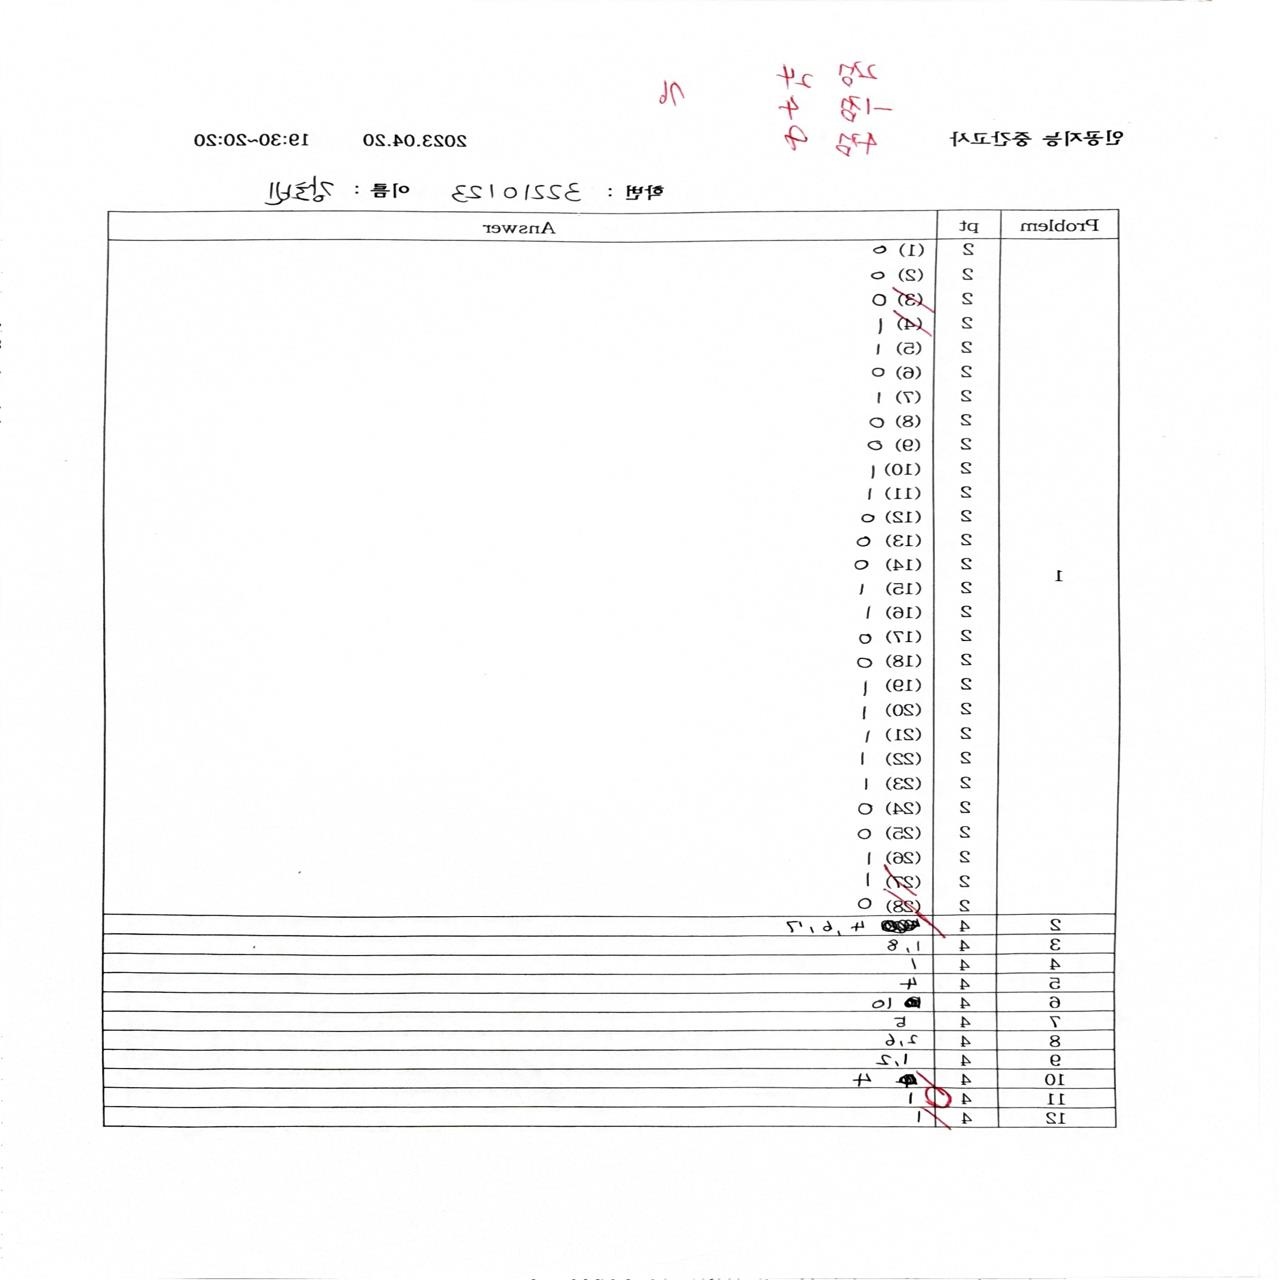 76
인공지능 중간고사 2023.04.20 19:30~20:20
학번 : 32210123 이름 :
Problem pt Answer
2 (1) 0
2 (2) 0
2 (3) 0
2 (4) 1
2 (5) 1
2 (6) 0
2 (7) 1
2 (8) 0
2 (9) 0
2 (10) 1
2 (11) 1
2 (12) 0
2 (13) 0
2 (14) 0
1 2 (15) 1
2 (16) 1
2 (17) 0
2 (18) 0
2 (19) 1
2 (20) 1
2 (21) 1
2 (22) 1
2 (23) 1
2 (24) 0
2 (25) 0
2 (26) 1
2 (27) 1
2 (28) 0
2 4 4,6,7
3 4 1,8
4 4 1
5 4 4
6 4 10
7 4 5
8 4 2,6
9 4 1,2
10 4 4
11 4 1
12 4 1